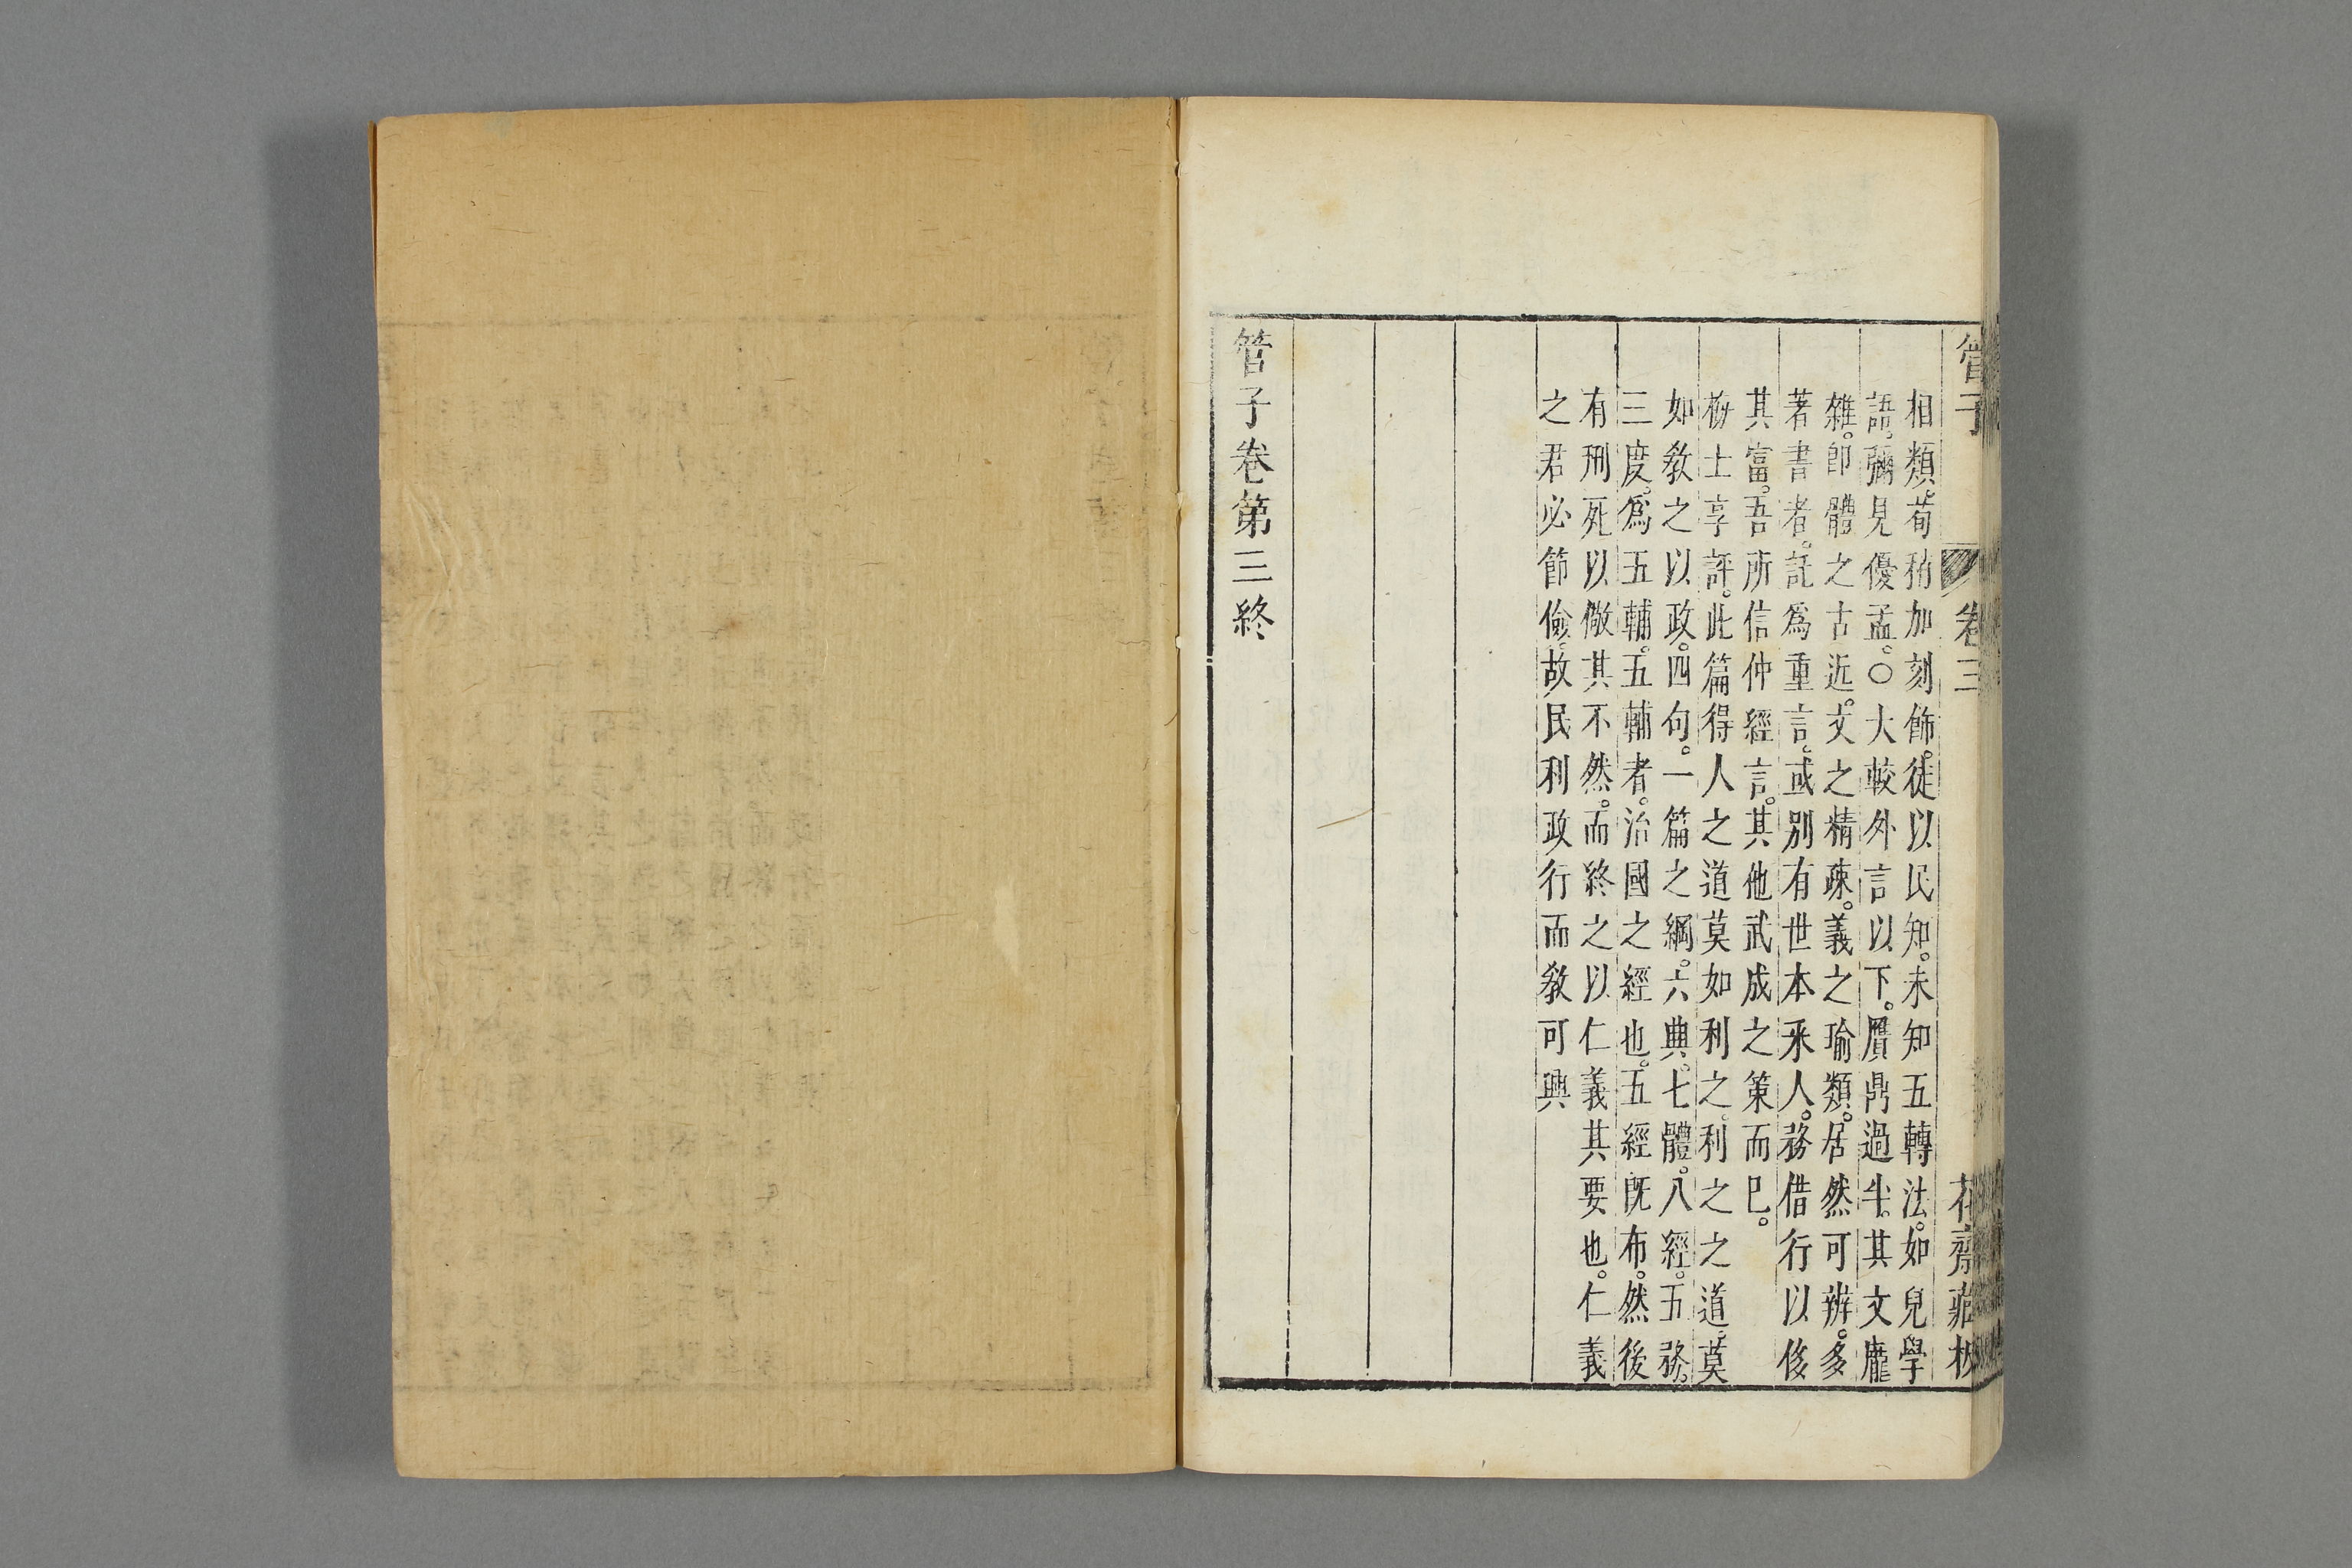 管子 卷三 花齋藏板
相類。荀稍加刻飾。徒以民知。未知五轉法。如兒學
語。彌見優孟。○大較外言以下。贋鼎過半。其文龐
雜。卽體之古近。文之精疎。義之瑜類。居然可辨。多
著書者。託爲重言。或別有世本釆人。務借行以侈
其富。吾所信仲經言。其他武成之策而已。
梅士享評。此篇得人之道莫如利之。利之之道。莫
如敎之以政。四句。一篇之綱。六典。七體。八經。五務。
三度。爲五輔。五輔者。治國之經也。五經旣布。然後
有刑死以儆其不然。而終之以仁義其要也。仁義
之君必節儉。故民利政行而敎可興
管子卷第三終